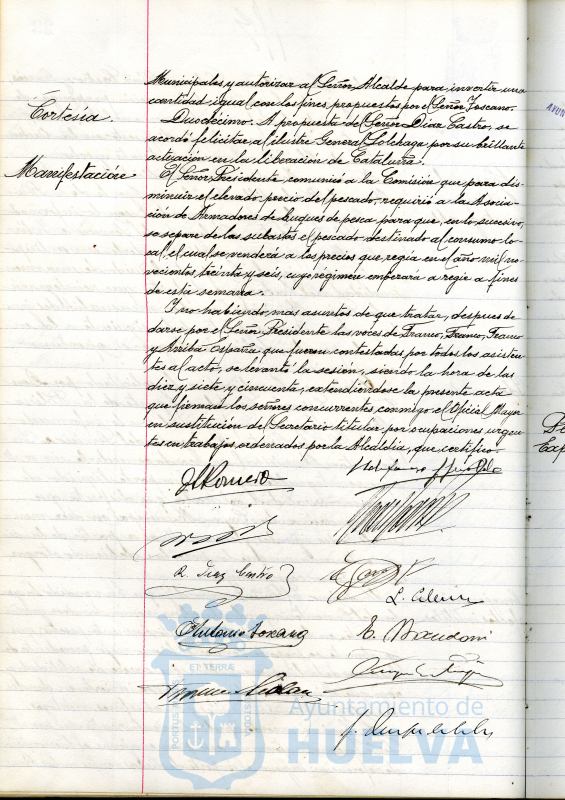 Municipales, y autorizar al Señor Alcalde para invertir una
cantidad igual con los fines propuestos por el Señor Toscano.
Cortesía.
Duodécimo. A propuesta del Señor Díaz Castro, se
acordó felicitar al ilustre General Solchaga por su brillante
actuación en la liberación de Cataluña.
Manifestación
El Señor Presidente, comunicó a la Comisión que para dis-
minuir el elevado precio del pescado, requirió a la Asocia-
ción de Armadores de buques de pesca para que, en lo sucesivo,
se separe de las subastas el pescado destinado al consumo lo-
cal, el cual se venderá a los precios que regía en el año mil no-
vecientos treinta y seis, cuyo régimen empezará a regir a fines
de esta semana.
Y no habiendo mas asuntos de que tratar, despues de
darse por el Señor Presidente las voces de Franco, Franco, Franco
y Arriba España que fueron contestadas por todos los asisten-
tes al acto, se levantó la sesión, siendo la hora de las
diez y siete y cincuenta, extendiéndose la presente acta
que firman los señores concurrentes, conmigo el Oficial Mayor
en sustitución del Secretario titular por ocupaciones urgen-
tes en trabajos ordenados por la Alcaldía, que certifico.
Romero
R. Díaz Castro
Antonio
E.
ET TERRÆ
Ayuntamiento de
HUELVA
AYUN